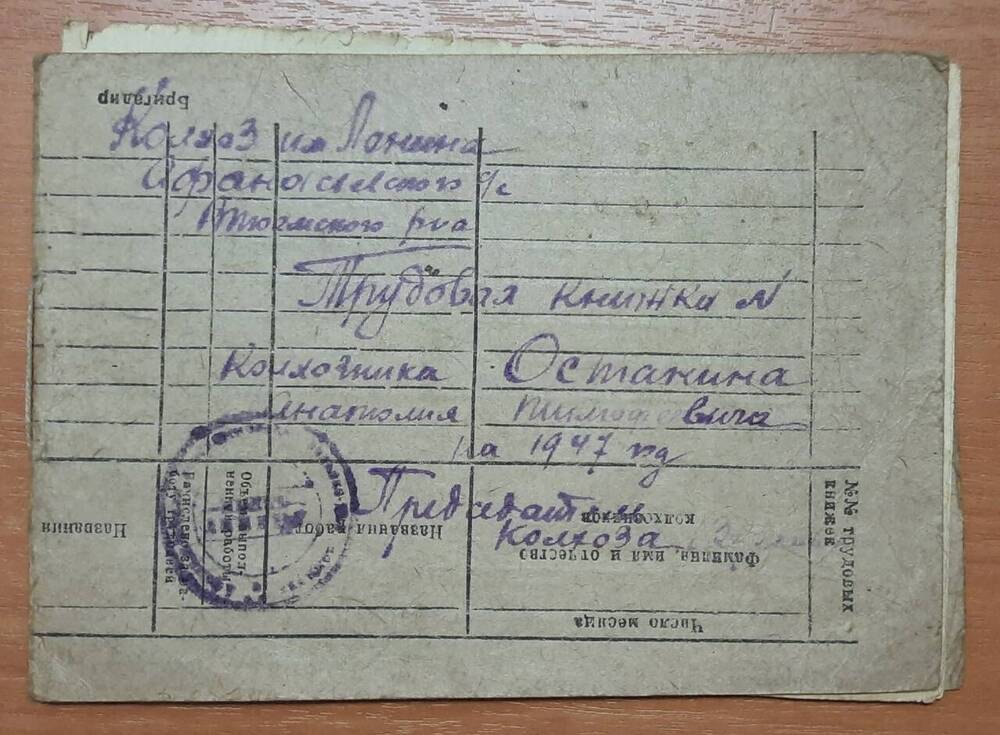 Колхоз им Ленина
Афанасьевского с/с
района
Трудовая книжка №
Колхозника Останина
Анатолия Тимофеевича
на 1947 год
Председатель
Колхоза
Бригадир
Названия
Объем выполненной работы
Названия работ
Фамилия, имя и отчество колхозников
№№ трудовых книжек
Число месяца